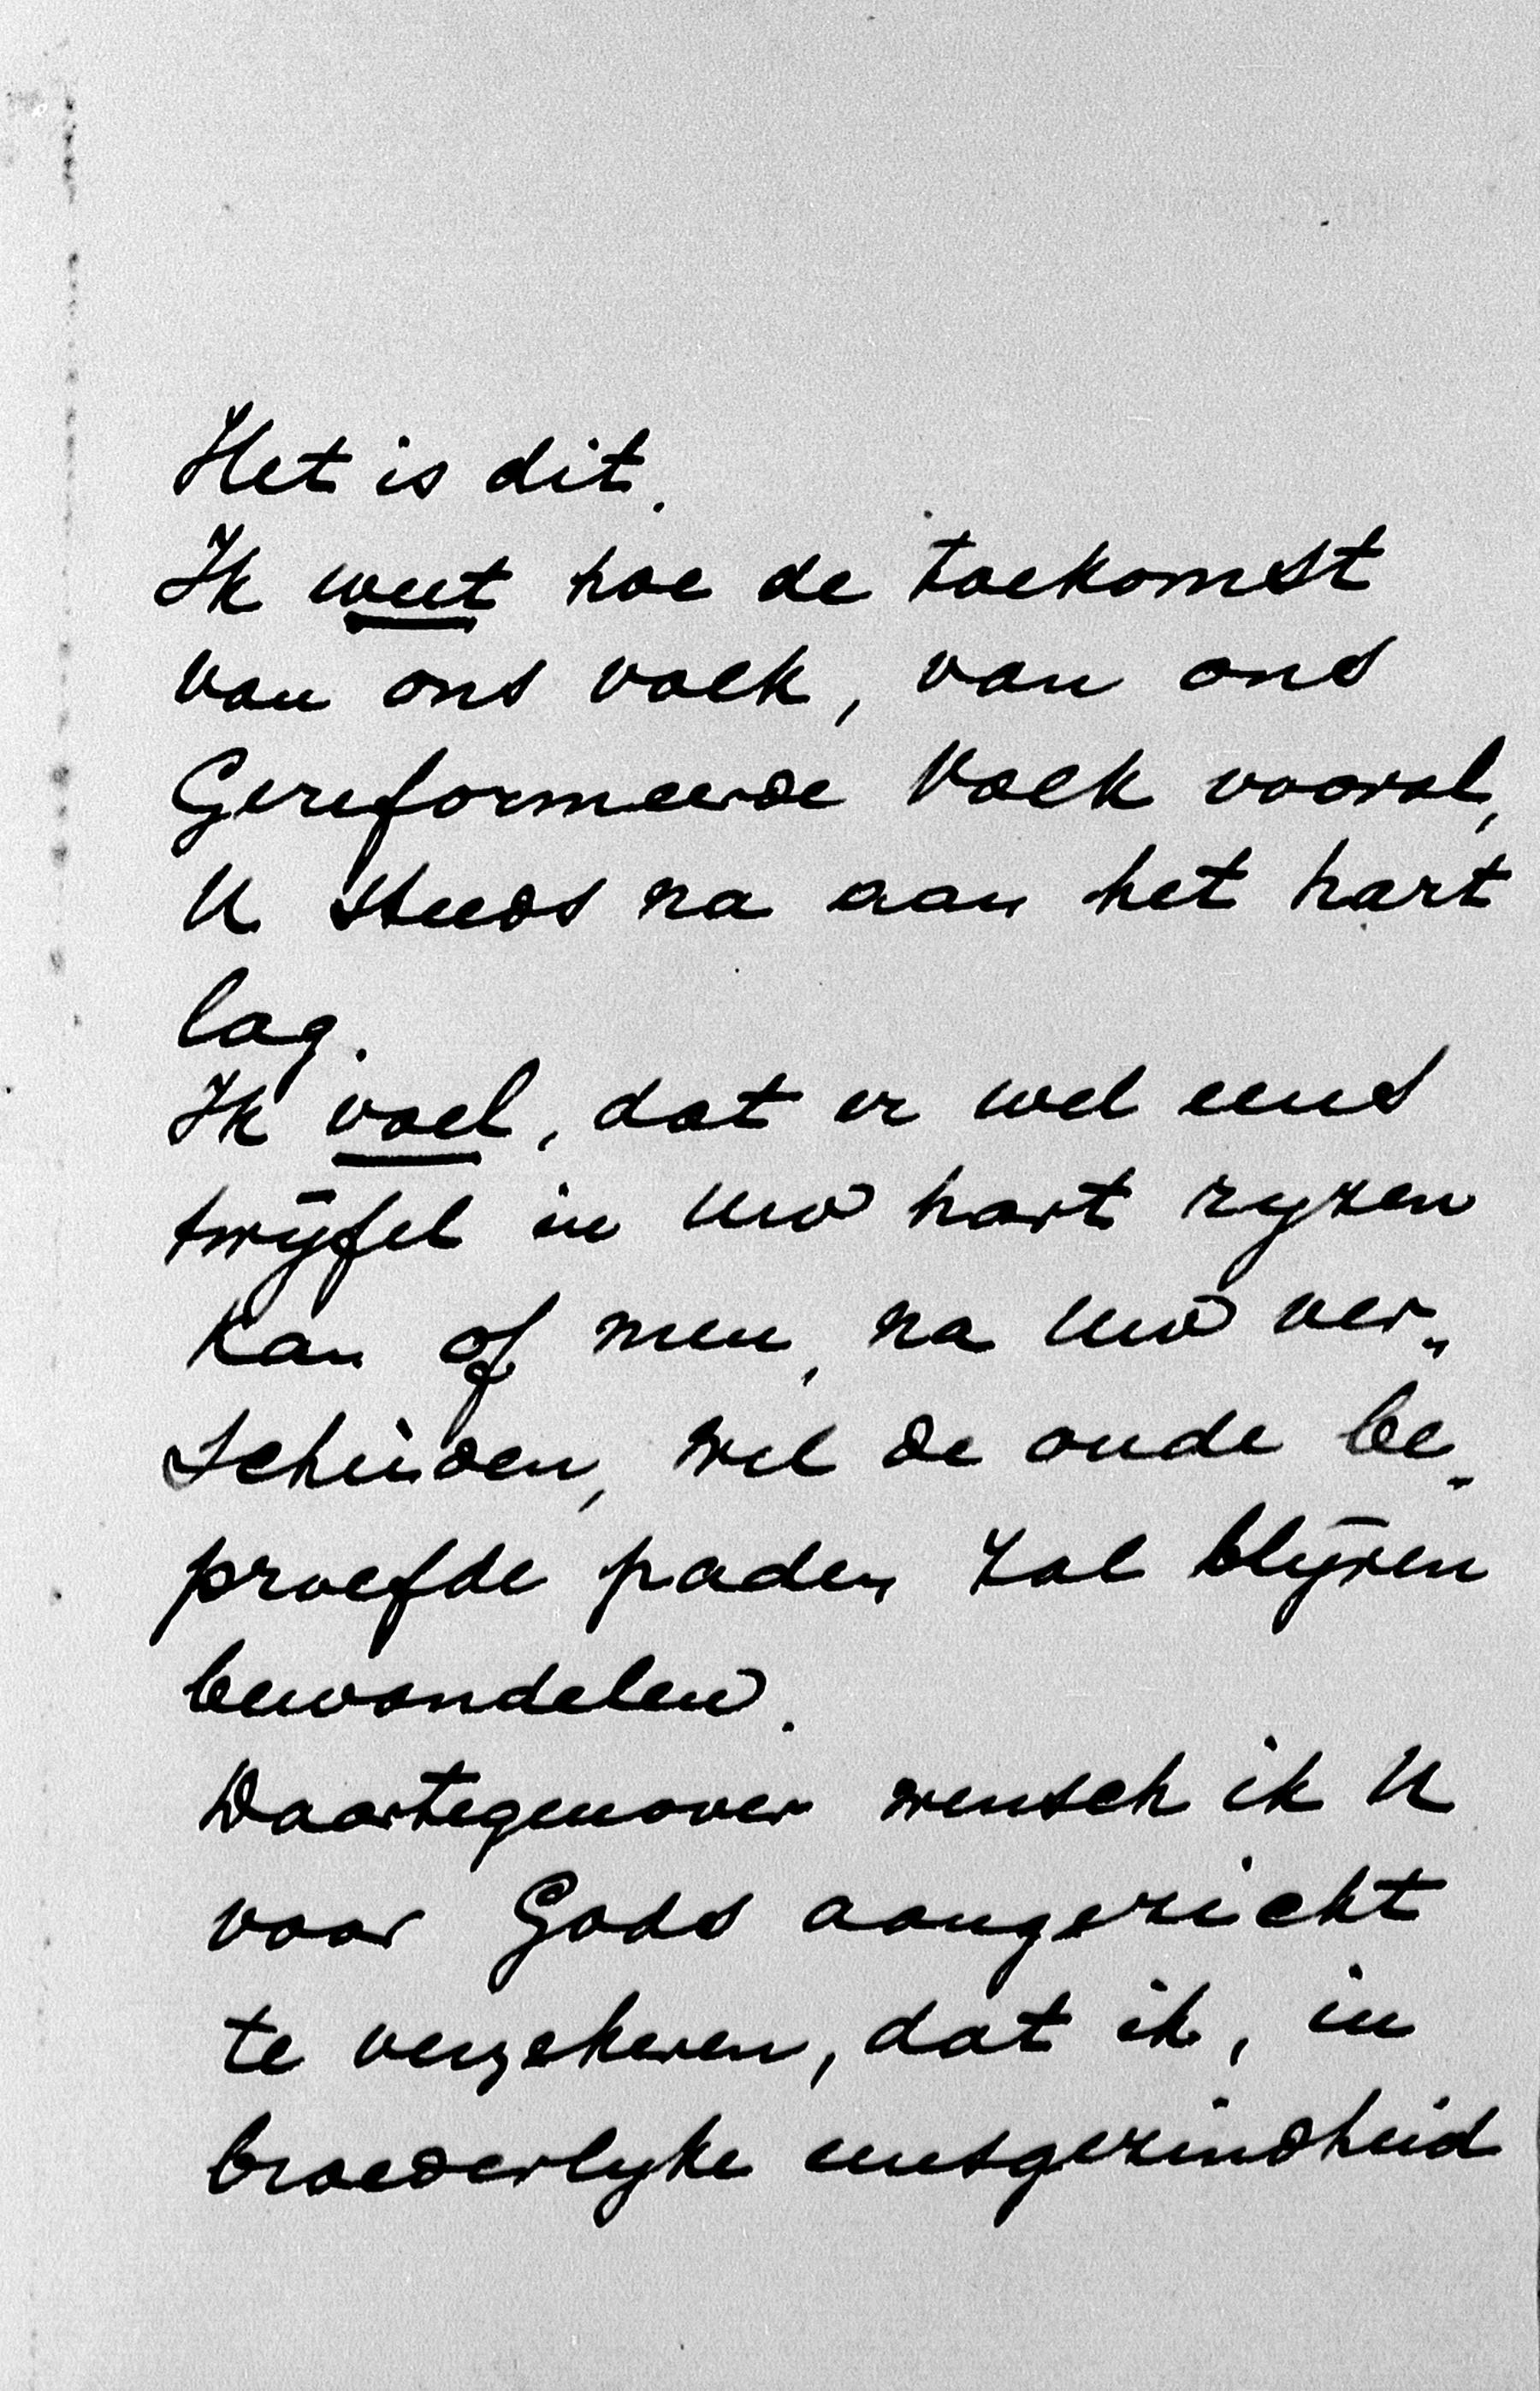 Het is dit.
Ik weet hoe de toekomst
van ons volk, van ons
Gereformeerde Volk vooral,
U steeds na aan het hart
lag.
Ik voel, dat er wel eens
twijfel in Uw hart ryzen
kan of men, na Uw ver„
scheiden, wel de oude be-
proefde paden zal blijven
bewandelen.
Daartegenover wensch ik U
voor Gods aangezicht
te verzekeren, dat ik, in
broederlyke eensgezindheid